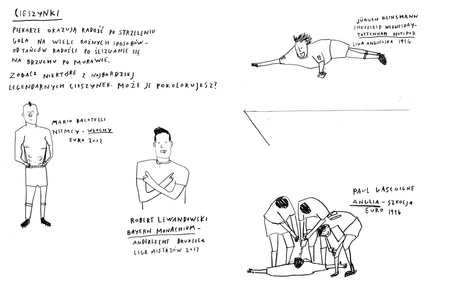 CIESZYNKI
PIŁKARZE OKAZUJĄ RADOŚĆ PO STRZELENIU
GOLA NA WIELE RÓŻNYCH SPOSOBÓW –
OD TAŃCÓW RADOŚCI PO ŚLIZGANIE SIĘ
NA BRZUCHU PO MURAWIE.
ZOBACZ NIEKTÓRE Z NAJBARDZIEJ
LEGENDARNYCH CIESZYNEK. MOŻE JE POKOLORUJESZ?
MARIO BALOTELLI
NIEMCY – WŁOCHY
EURO 2012
ROBERT LEWANDOWSKI
BAYERN MONACHIUM –
ANDERLECHT BRUKSELA
LIGA MISTRZÓW 2017
JÜRGEN KLINSMANN
SHEFFIELD WEDNESDAY –
TOTTENHAM HOTSPUR
LIGA ANGIELSKA 1994
PAUL GASCOIGNE
ANGLIA – SZKOCJA
EURO 1996